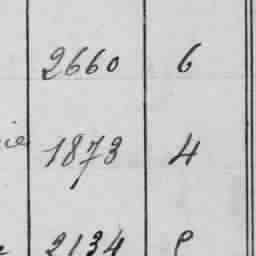 2660 6
1873 4
2134